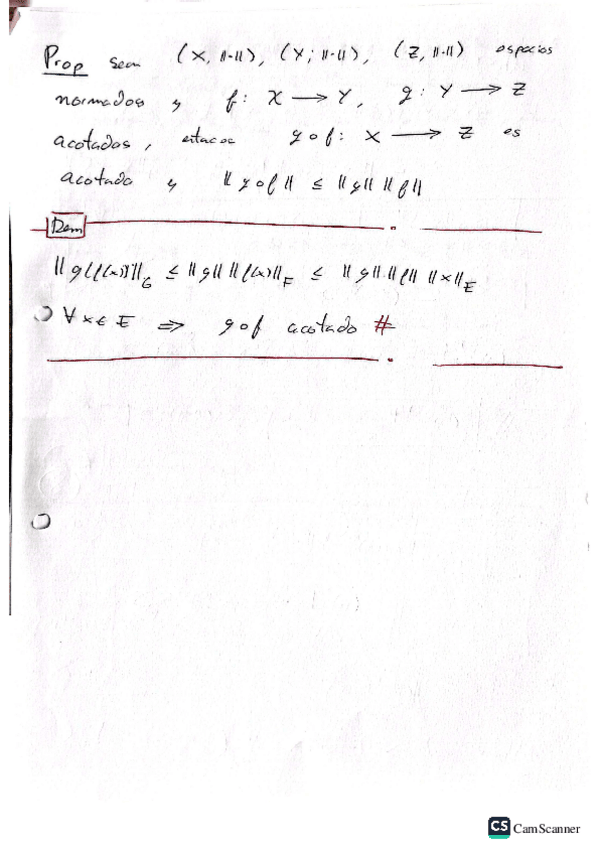 Prop sean (X, ||·||), (Y; ||·||), (Z, ||·||) espacios
normados y f: X → Y, g: Y → Z
acotados, entonces g∘f: X → Z es
acotado y ||g∘f|| ≤ ||g|| ||f||
Dem
||g(f(x))||_G ≤ ||g|| ||f(x)||_F ≤ ||g|| ||f|| ||x||_E
∀ x ∈ E ⇒ g∘f acotado #
CS CamScanner